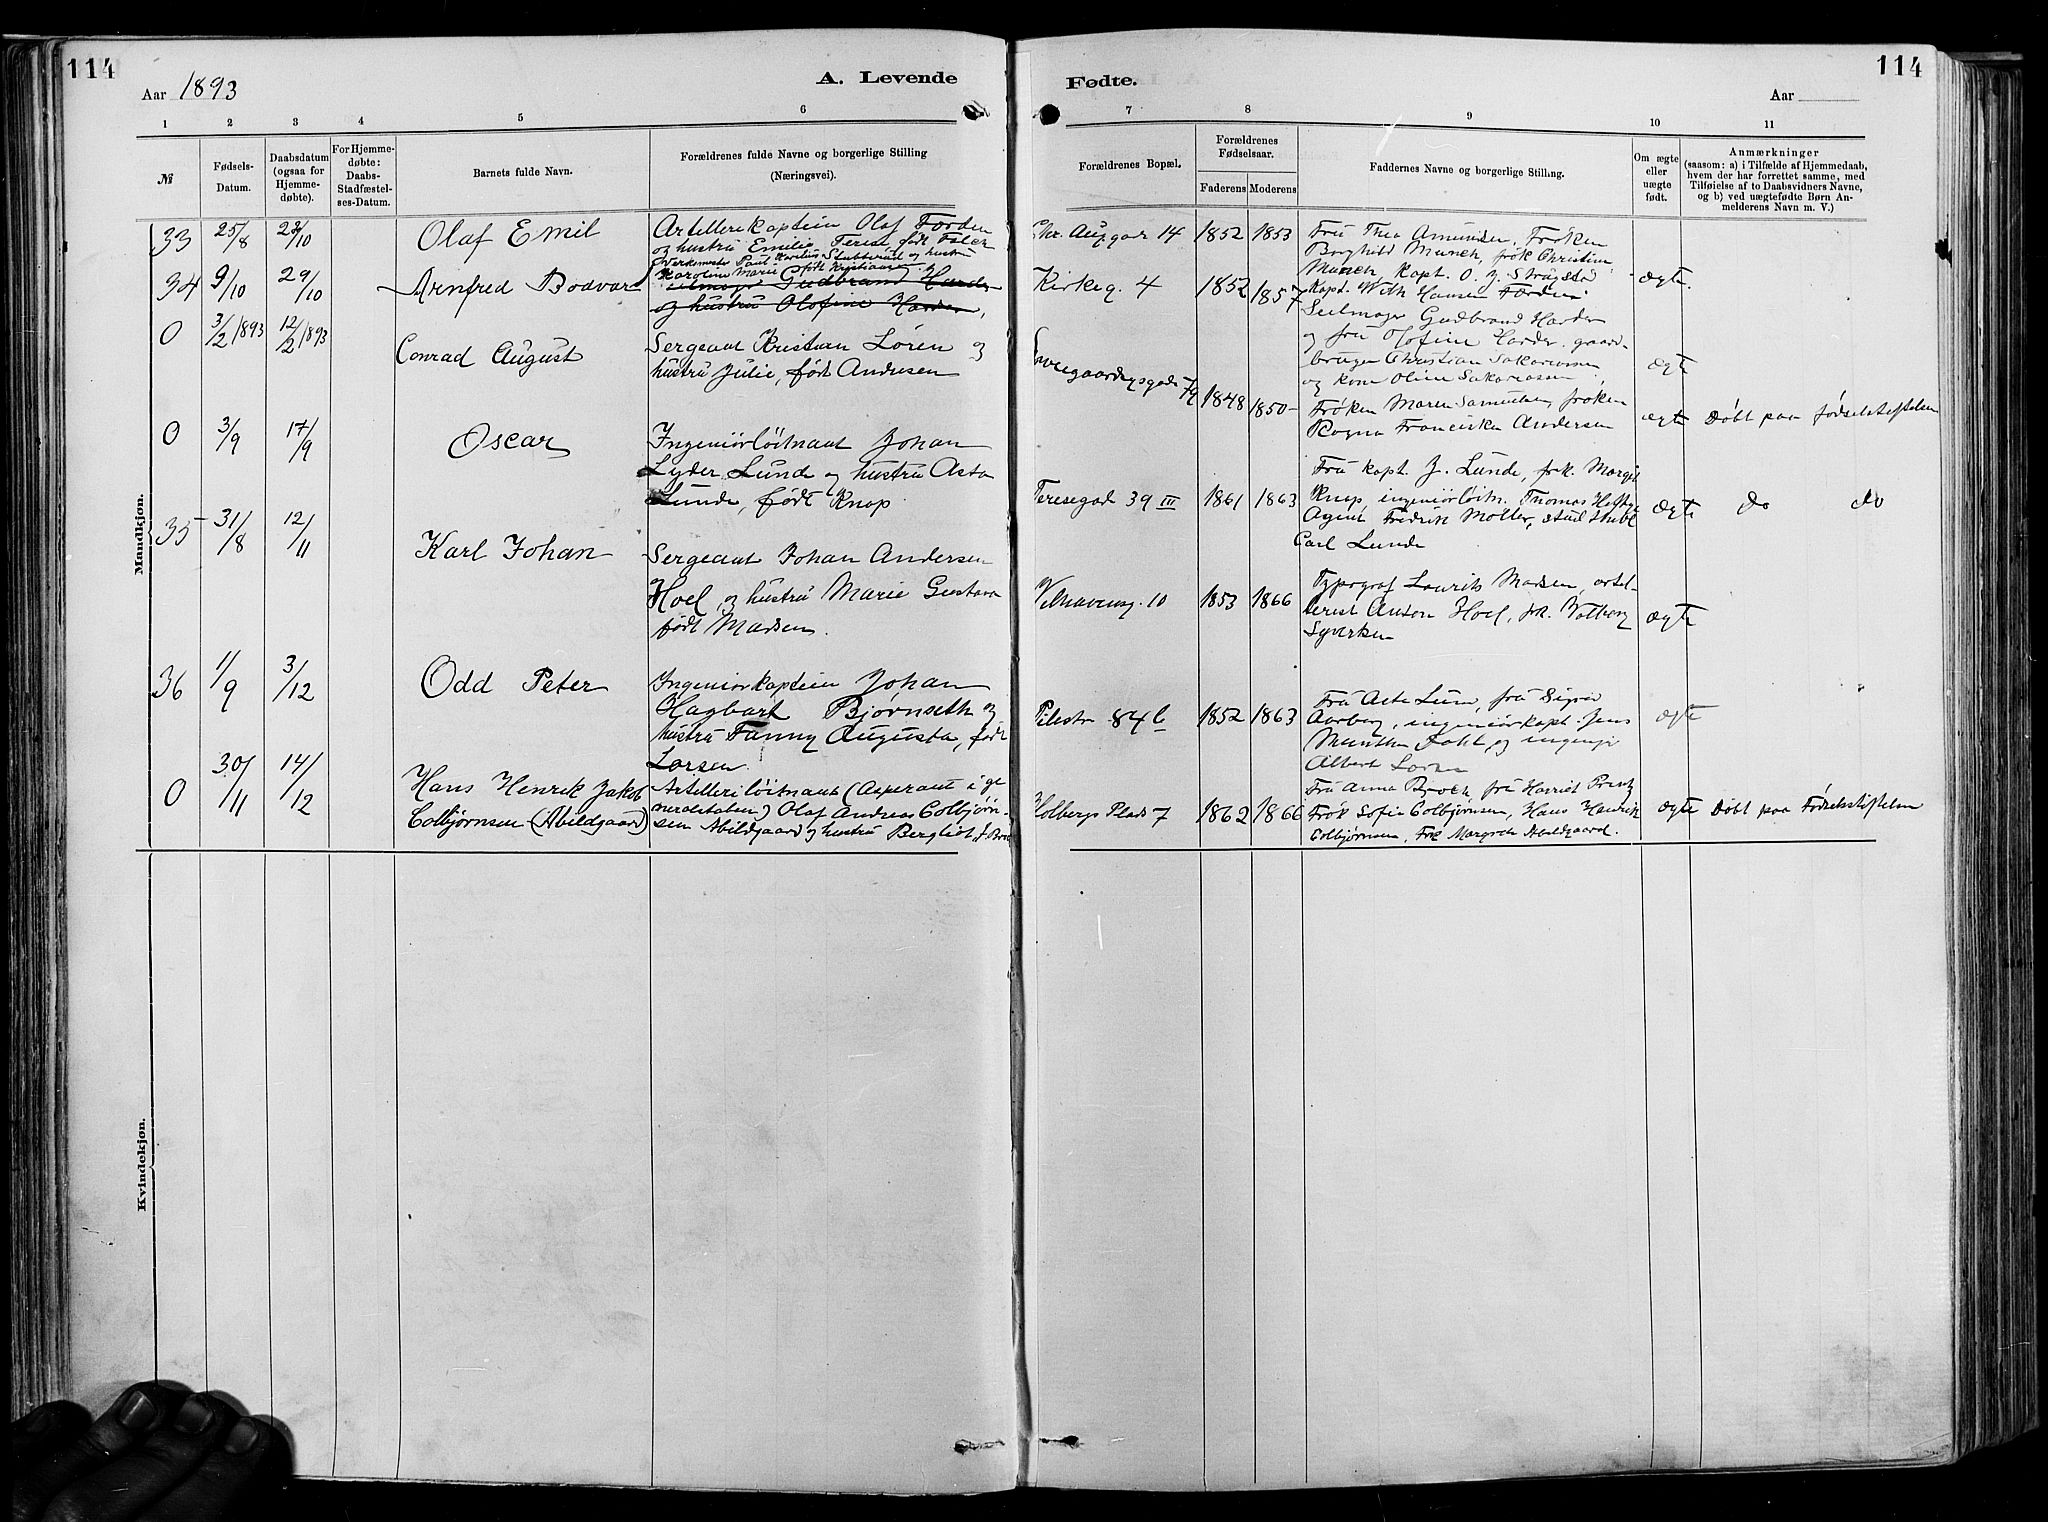 114
Aar 1893
A. Levende
1 2 3 4 5 6
№
Fødsels-
Datum.
Daabsdatum
(ogsaa for
Hjemme-
døbte).
For Hjemme-
døbte:
Daabs-
Stadfæstel-
ses-Datum.
Barnets fulde Navn.
Forældrenes fulde Navne og borgerlige Stilling
(Næringsvei).
Mandkjøn.
33 25/8 /10 Olaf Emil
Artillerikaptein Olaf
og hustru Emilie født
34 9/10 29/10 Arnfred Bodvar
Verksmester Paul Stubberud og hustru
Karoline Marie født Kristiansen
Gudbrand Harder
og hustru Olofine Harder,
0 3/2 1893 12/2 1893 Conrad August
Sergeant Kristian Løren og
hustru Julie, født Andresen
0 3/9 17/9 Oscar
Ingeniörlöitnant Johan
Lyder Lunde og hustru Asta
Lunde, født Knop
35 31/8 12/11 Karl Johan
Sergeant Johan Andersen
Hoel, og hustru Marie Gustava
født Madsen.
36 1/9 3/12 Odd Peter
Ingeniörkaptein Johan
Hagbart Bjørnseth og
hustru Fanny Augusta, født
Larsen.
0 30/11 14/12 Hans Henrik Jakob
Colbjørnsen (Abildgaard)
Artillerilöitnant (Asperant i ge
neralstaben) Olaf Andreas Colbjørn-
sen Abildgaard og hustru Bergliot, f.
Kvindekjøn.
114
Fødte.
Aar
7 8 9 10 11
Forældrenes Bopæl.
Forældrenes
Fødselsaar.
Faderens Moderens
Faddernes Navne og borgerlige Stilling.
Om ægte
eller
uægte
født.
Anmærkninger
(saasom: a) i Tilfælde af Hjemmedaab,
hvem der har forrettet samme, med
Tilføielse af to Daabsvidners Navne,
og b) ved uægtefødte Børn An-
melderens Navn m. V.)
Chr. Auggar 14 1852 1853
Fru Thea Amundsen, Frøken
Borghild Munch, frøk Christine
Munch, kapt. O. J.
Kapt. Wilh Hansen
ægte.
Kirkeg. 4 1852 1857
Seilmager Gudbrand Harder
og fru Olofine Harder. gaard-
bruger Christian
og kone Oline
ægte
1848 1850
Frøken Maren Samuelsen, frøken
Ragna Franciska Andersen
ægte Døbt paa fødselstiftelsen
Teresegad 39 III 1861 1863
Fru kapt. J. Lunde, frøk.
Knop, ingeniörlöitn. Thomas
Agent Fredrik Møller,
Carl Lunde
ægte do do
Welhavensg. 10 1853 1866
Typograf Laurits Madsen,
Anton Hoel, frk.
ægte
Pilestr 84 b 1852 1863
Fru Lund, fru Signe
ingeniörkapt. Jens
Munthe og
Albert Larsen
ægte
Holbergs Plads 7 1862 1866
Fru Anna fru Harriet
Frøk Sofie Colbjørnsen, Hans Henrik
Colbjørnsen, Frk Margrete Abildgaard.
ægte Døbt paa Fødselsstiftelsen